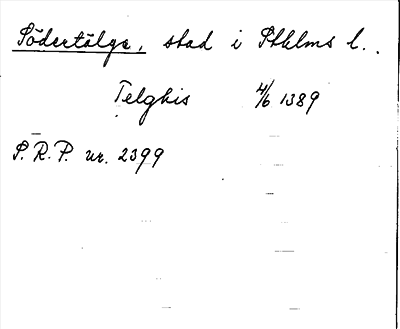 Södertälge, stad i Sthlms l.
Telghis 4/6 1389
S.R.P. nr. 2399